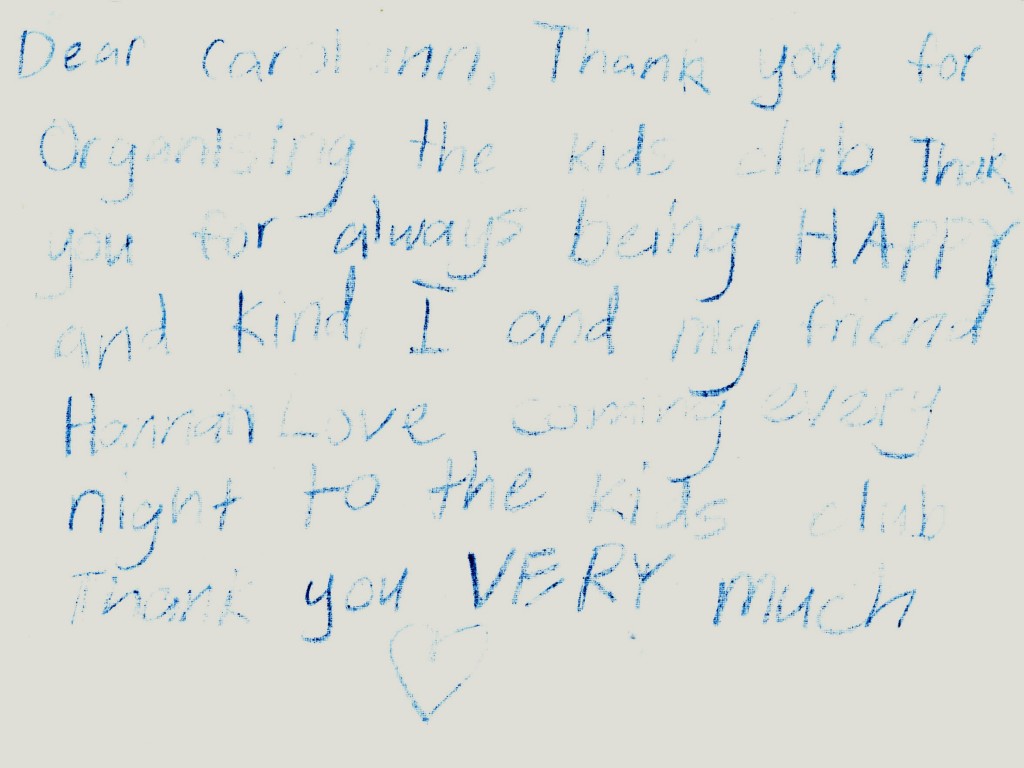 Dear Carol ann, Thank you for
Organising the kids club Thak
you for always being HAPPY
and kind. I and my friend
Hannah Love coming every
night to the kids club
Thank you VERY much